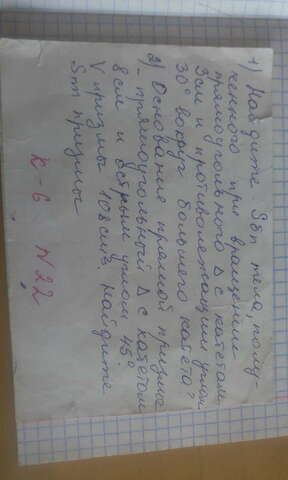 1) Найдите Sбп тела, полу-
ченного при вращении
прямоугольного Δ с катетом
3см и противолежащим углом
30° вокруг большего катета?
2) Основание прямой призмы
- прямоугольный Δ с катетом
8см и острым углом 45°
V призмы 108см³, найдите
Sпп призмы
К-6 №22